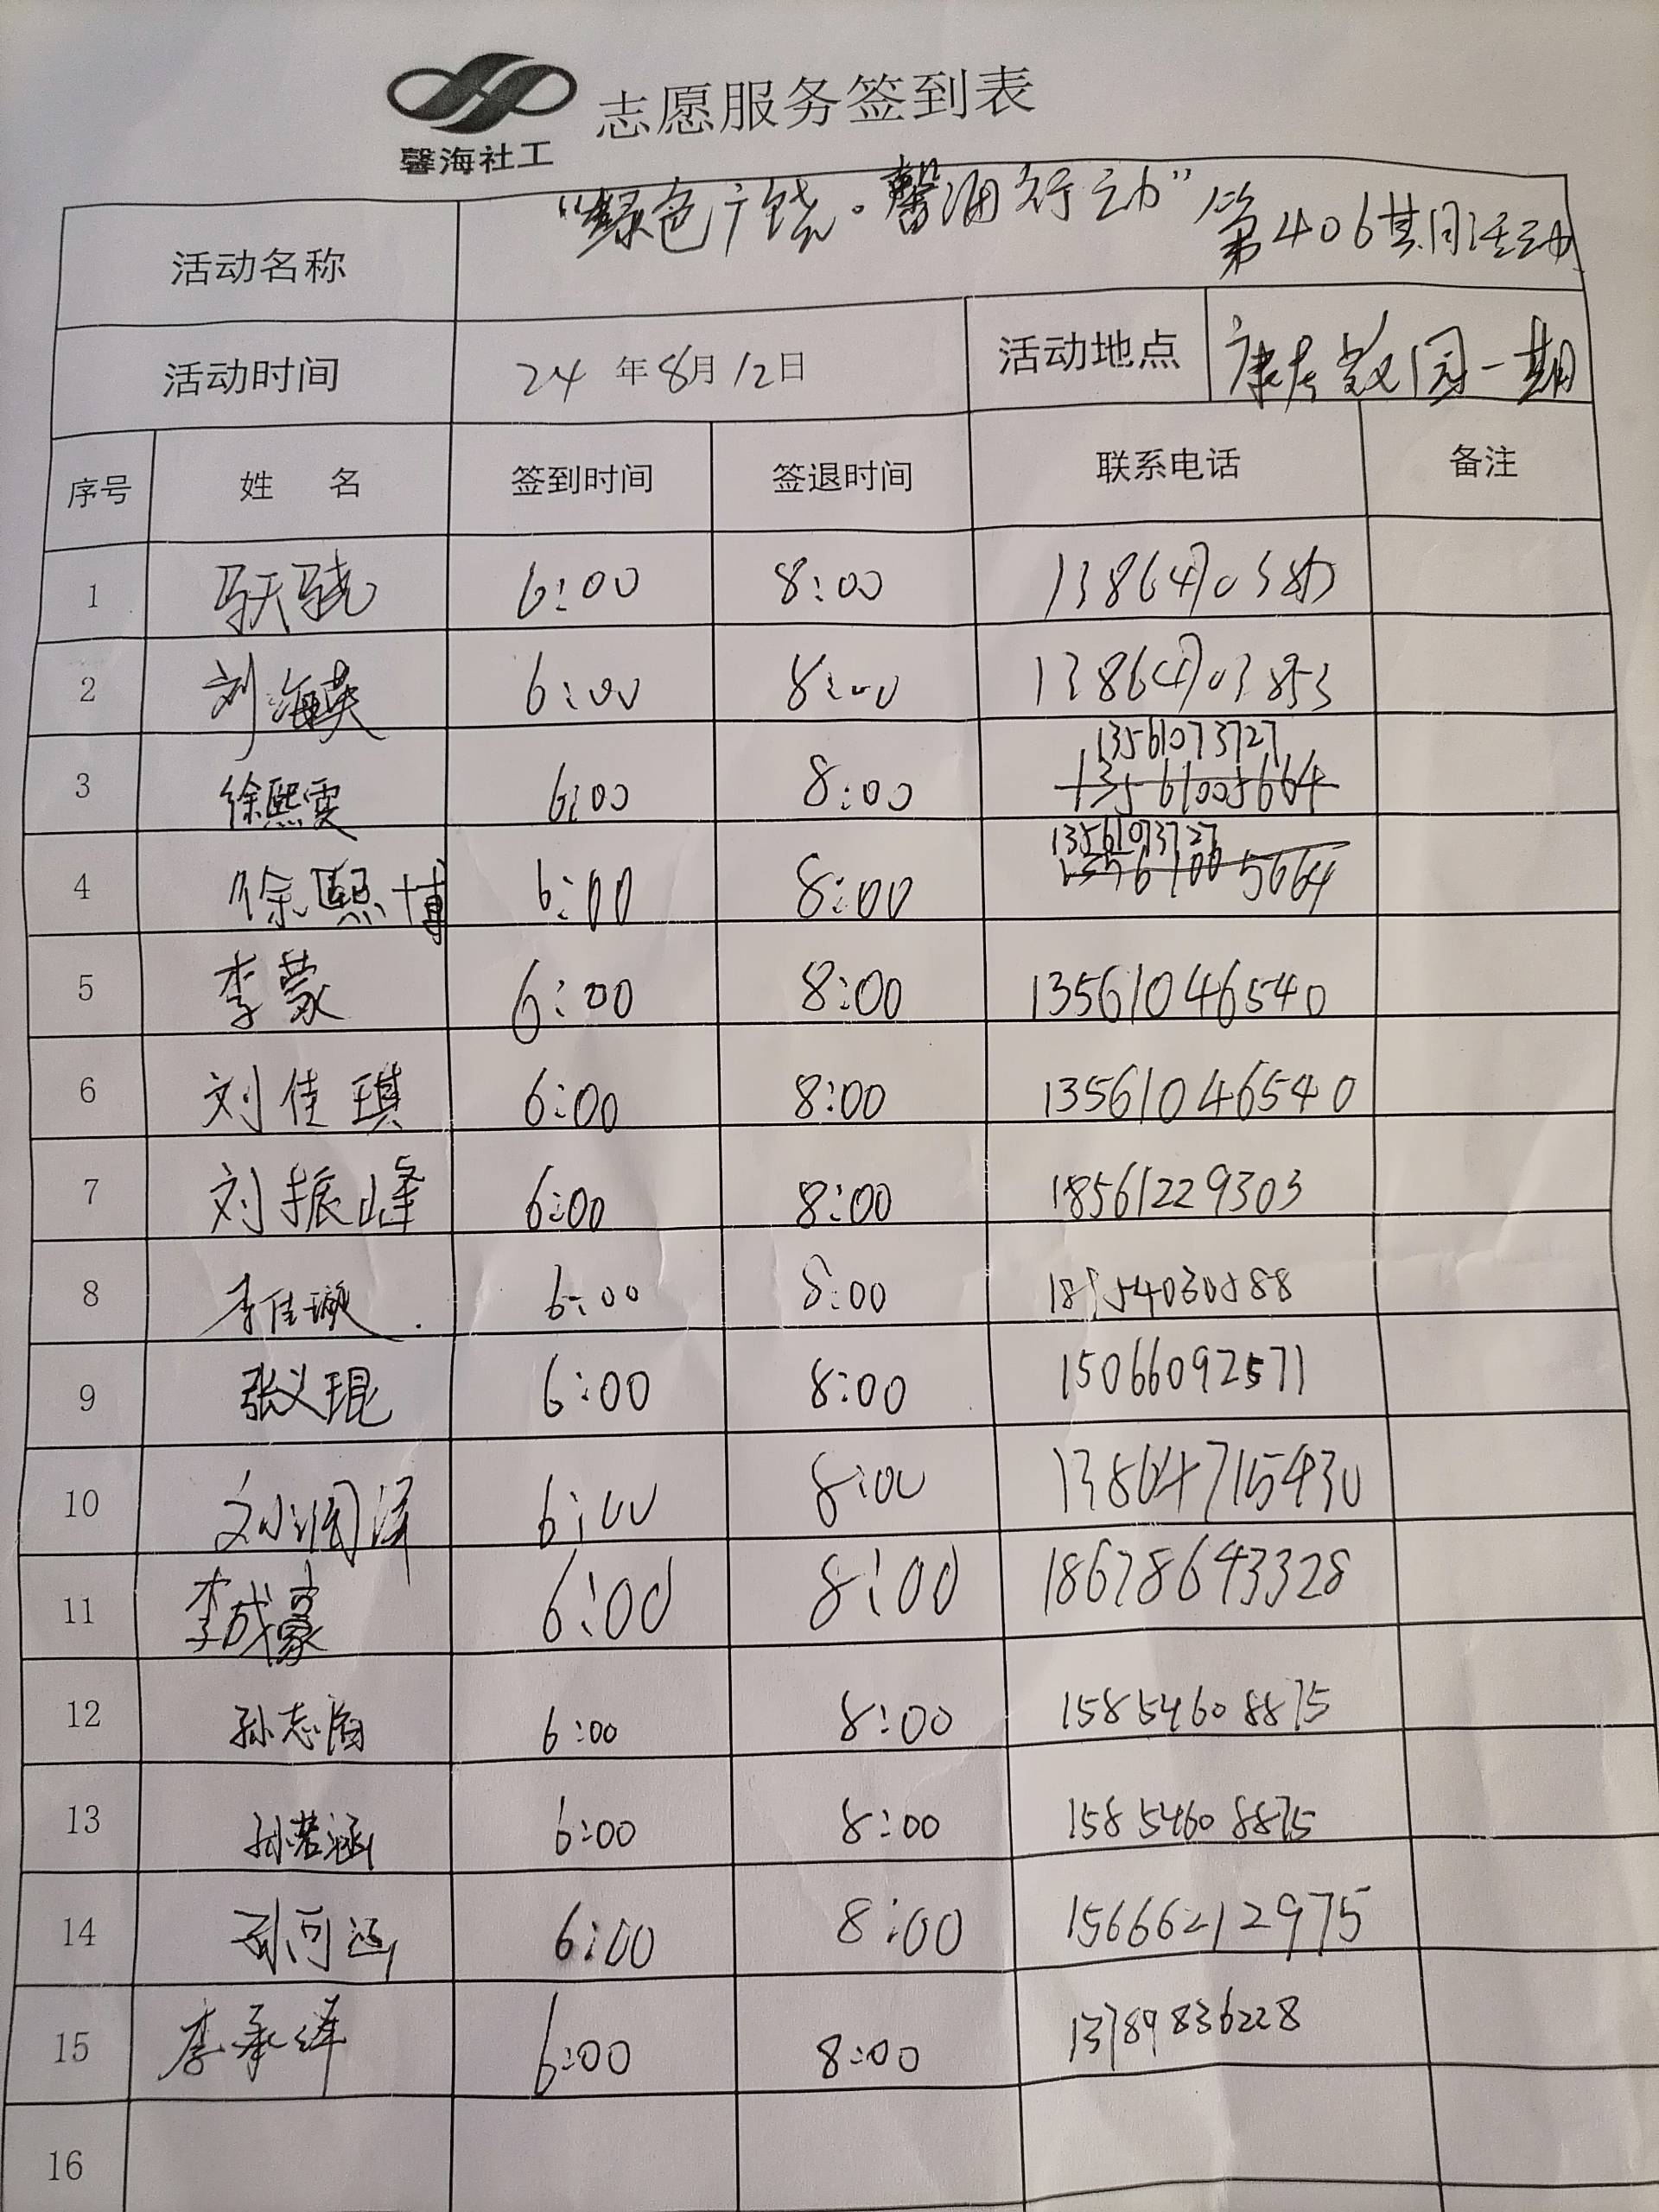 志愿服务签到表
馨海社工
活动名称 “绿色广饶·馨海行动”第406期活动
活动时间 24年8月12日 活动地点 康居花园一期
序号 姓 名 签到时间 签退时间 联系电话 备注
1 6:00 8:00
2 刘海英 6:00 8:00 13864703853
3 徐熙雯 6:00 8:00 13561073727
13561005664
4 徐熙博 6:00 8:00 13561073727
13561005664
5 李蒙 6:00 8:00 13561046540
6 刘佳琪 6:00 8:00 13561046540
7 刘振峰 6:00 8:00 18561229303
8 李佳璇 6:00 8:00 18954030588
9 张义琨 6:00 8:00 15066092571
10 刘润泽 6:00 8:00 13864715430
11 李成豪 6:00 8:00 18678643328
12 孙志 6:00 8:00 15854608875
13 孙若涵 6:00 8:00 15854608875
14 孙可涵 6:00 8:00 15666212975
15 李承绎 6:00 8:00 13789836228
16